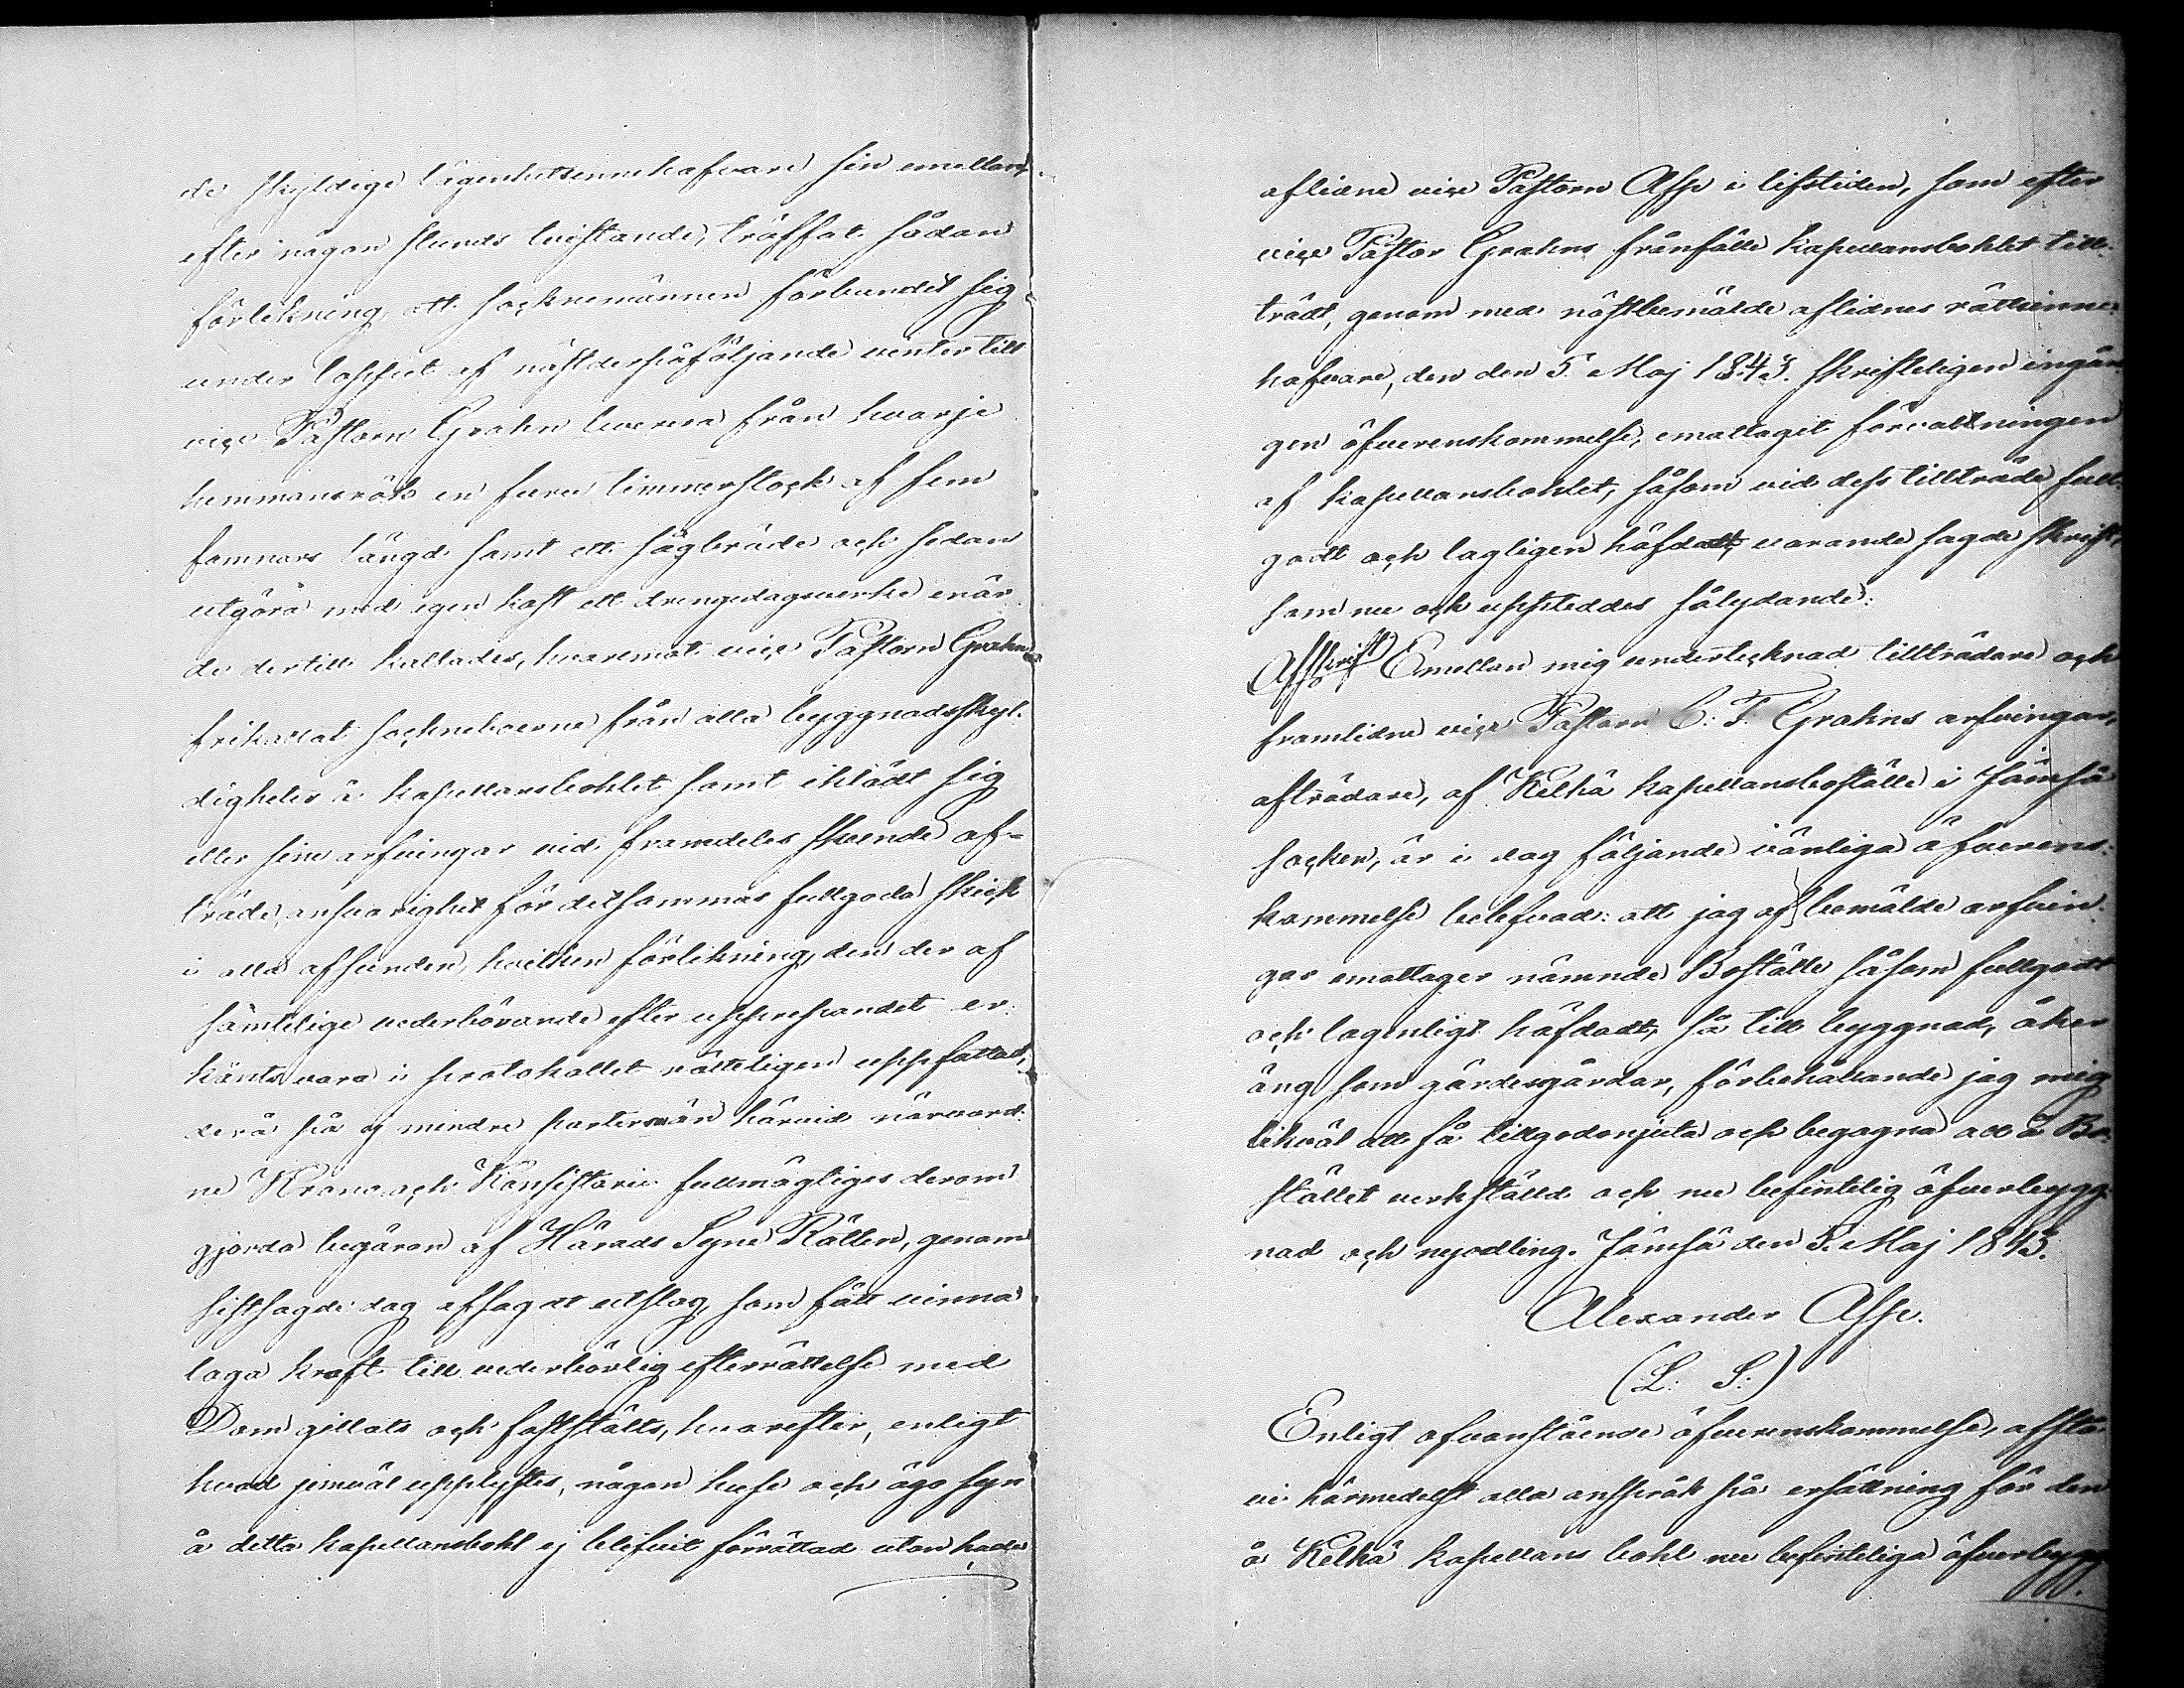 de skyldige lägenhetsinnehafvare sin emellan,
efter någon stunds beråd, träffat sådan
förlikning, att socknemännen förbundit sig
under loppet af nästderpåföljande vinter till
vice Pastorn Grahn leverera från hvarje
hemmansrök en furu timmerstock af fem
famnars längd samt ett sågbräde och sedan
utgöra med egen kost ett drengedagsverke enär
de dertill kallades, hvaremot vice Pastorn Grahn
frikallat sockneboerne från alla byggnadsskyl-
digheter å kapellansbohlet samt iklädt sig
eller sine arfvingar vid framdeles skeende af-
träde, ansvarighet för detsammas fullgoda skick
i alla afseenden, hvilken förlikning, den der af
samtelige vederbörande efter uppropandet er-
känts vara i protokollet rätteligen uppfattad,
derå på ej mindre parternas än härvid närvaran-
ne Krono och Konsistorii fullmägtiges derom
gjorda begäran af Härads Syne Rätten, genom
sistsagde dag afsagdt utslag, som fått vinna
laga kraft till vederbörlig efterrättelse med
Dom gillats och faststälts, hvarefter, enligt
hvad jemväl upplystes, någon huse och ägo syn
å detta kapellansbohl ej blifvit förrättad utan hade
aflidne vice Pastorn Asp i lifstiden, som efter
vice Pastor Grahns frånfälle kapellansbohlet till-
trädt, genom med nästbemälde aflidnes rättsinne-
hafvare, den den 5 Maj 1843. skrifteligen ingån-
gen öfverenskommelse, emottagit förvaltningen
af kapellansbohlet, såsom vid dess tillträde full-
godt och lagligen häfdadt, varande sagde skrift,
som nu ock uppteddes sålydande:
Afskrift Emellan mig undertecknad tillträdare och
framlidne vice Pastorn C: F. Grahns arfvingar,
afträdare, af Kelhä kapellansboställe i Jämsä
socken, är i dag följande vänliga öfverens-
kommelse belefvad: att jag af bemälde arfvin-
gar emottager nämnde Boställe såsom fullgodt
och lagenligt häfdadt, så till byggnad, åker
äng som gärdesgårdar, förbehållande jag mig
likväl att få tillgodonjuta och begagna all å Bo-
stället verkställd och nu befintelig öfverbygg-
nad och nyodling. Jämsä den 5. Maj 1843.
Alexander Asp.
(L. S:)
Enligt ofvanstående öfverenskommelse, afstå
vi härmedelst alla anspråk på ersättning för den
å Kelhä kapellans bohl nu befinteliga öfverbygg-